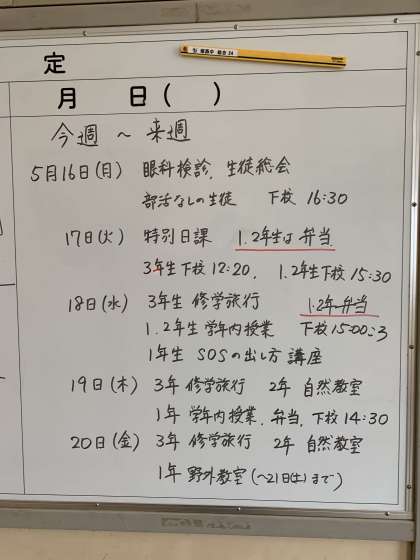 定
月 日( )
今週 ~ 来週
5月16日(月) 眼科検診、生徒総会
部活なしの生徒 下校 16:30
17日(火) 特別日課 1.2年生は弁当
3年生下校12:20、1.2年生下校15:30
18日(水) 3年生 修学旅行 1.2年弁当
1.2年生学年内授業 下校15:00
1年生 SOSの出し方 講座
19日(木) 3年 修学旅行 2年 自然教室
1年 学年内授業、弁当、下校14:30
20日(金) 3年 修学旅行 2年 自然教室
1年 野外教室(~21日(土)まで)